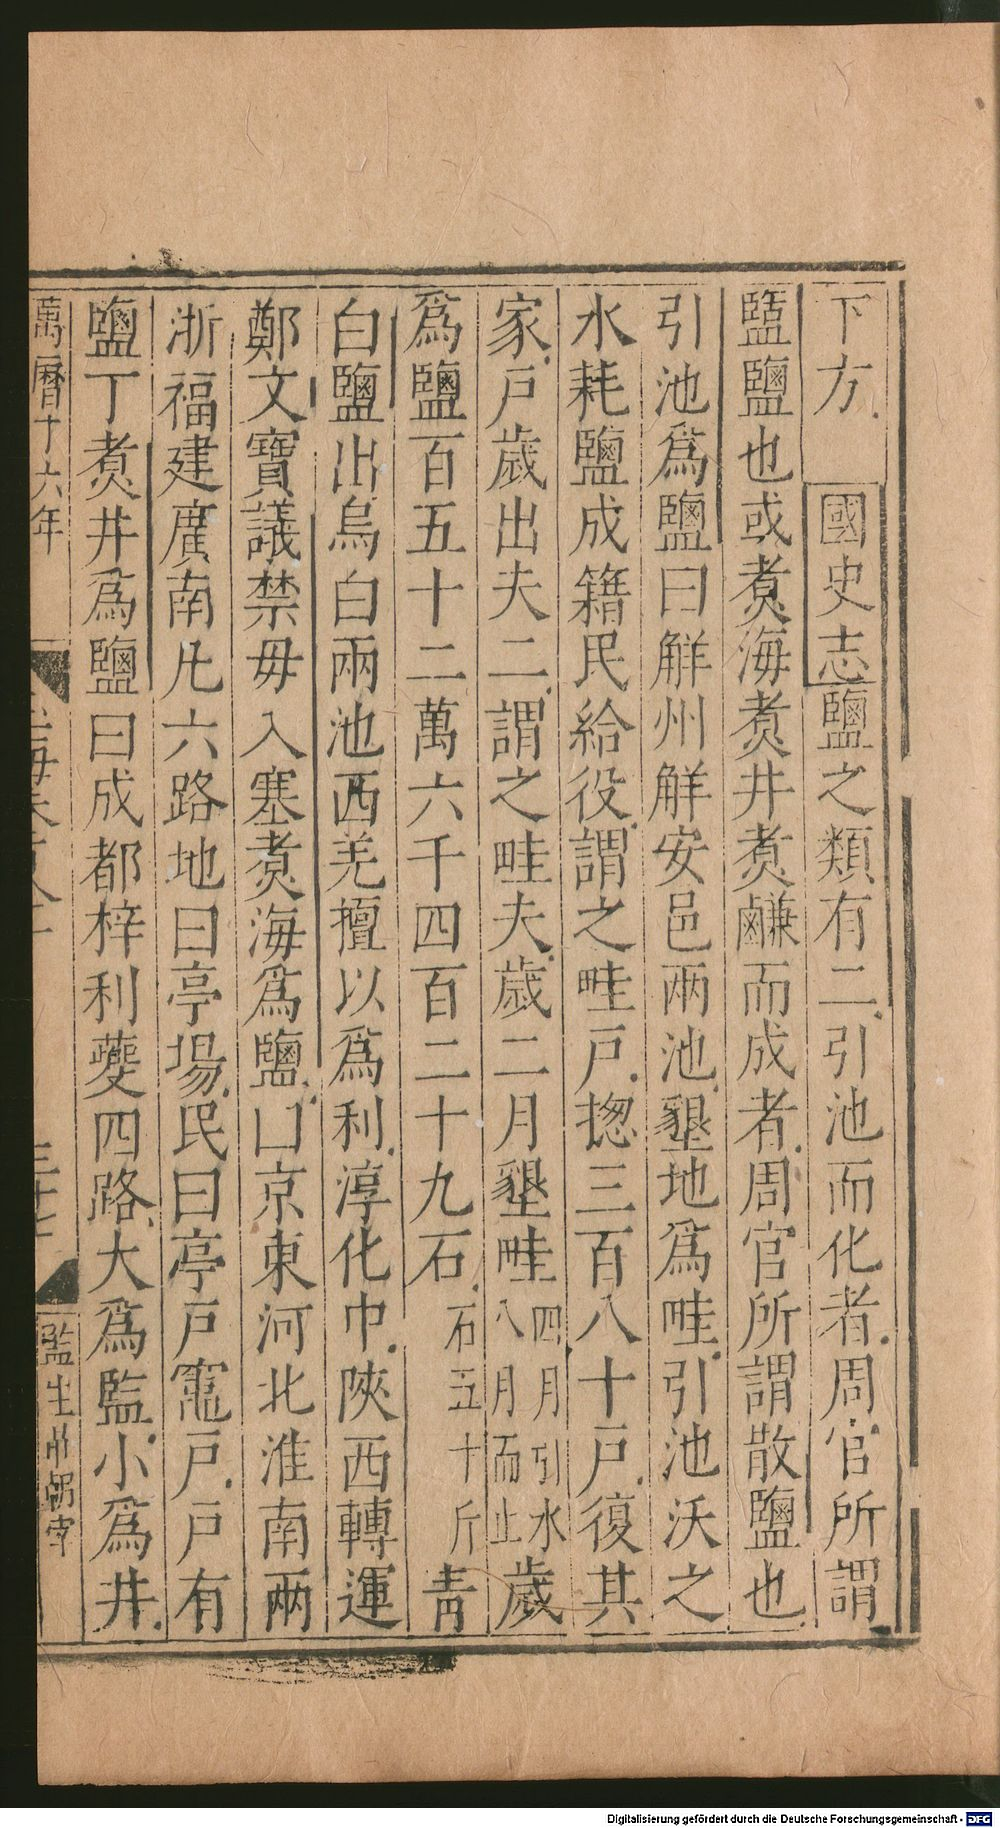 下方國史志鹽之類有二引池而化者周官所謂
盬鹽也或煑海煑井煑鹻而成者周官所謂散鹽也
引池爲鹽曰觧州觧安邑兩池墾地爲畦引池沃之
水耗鹽成籍民給役謂之畦戶揔三百八十戶復其
家戶歲出夫二謂之畦夫歲二月墾畦四月引水八月而止歲
爲鹽百五十二萬六千四百二十九石石五十斤靑
白鹽出烏白兩池西羌擅以爲利淳化中陜西轉運
鄭文寶議禁毋入塞煑海爲鹽曰京東河北淮南兩
浙福建廣南凡六路地曰亭場民曰亭戶竈戶戶有
鹽丁煑井爲鹽曰成都梓利夔四路大爲監小爲井
萬曆十六年
監生
Digitalisierung gefördert durch die Deutsche Forschungsgemeinschaft - DFG